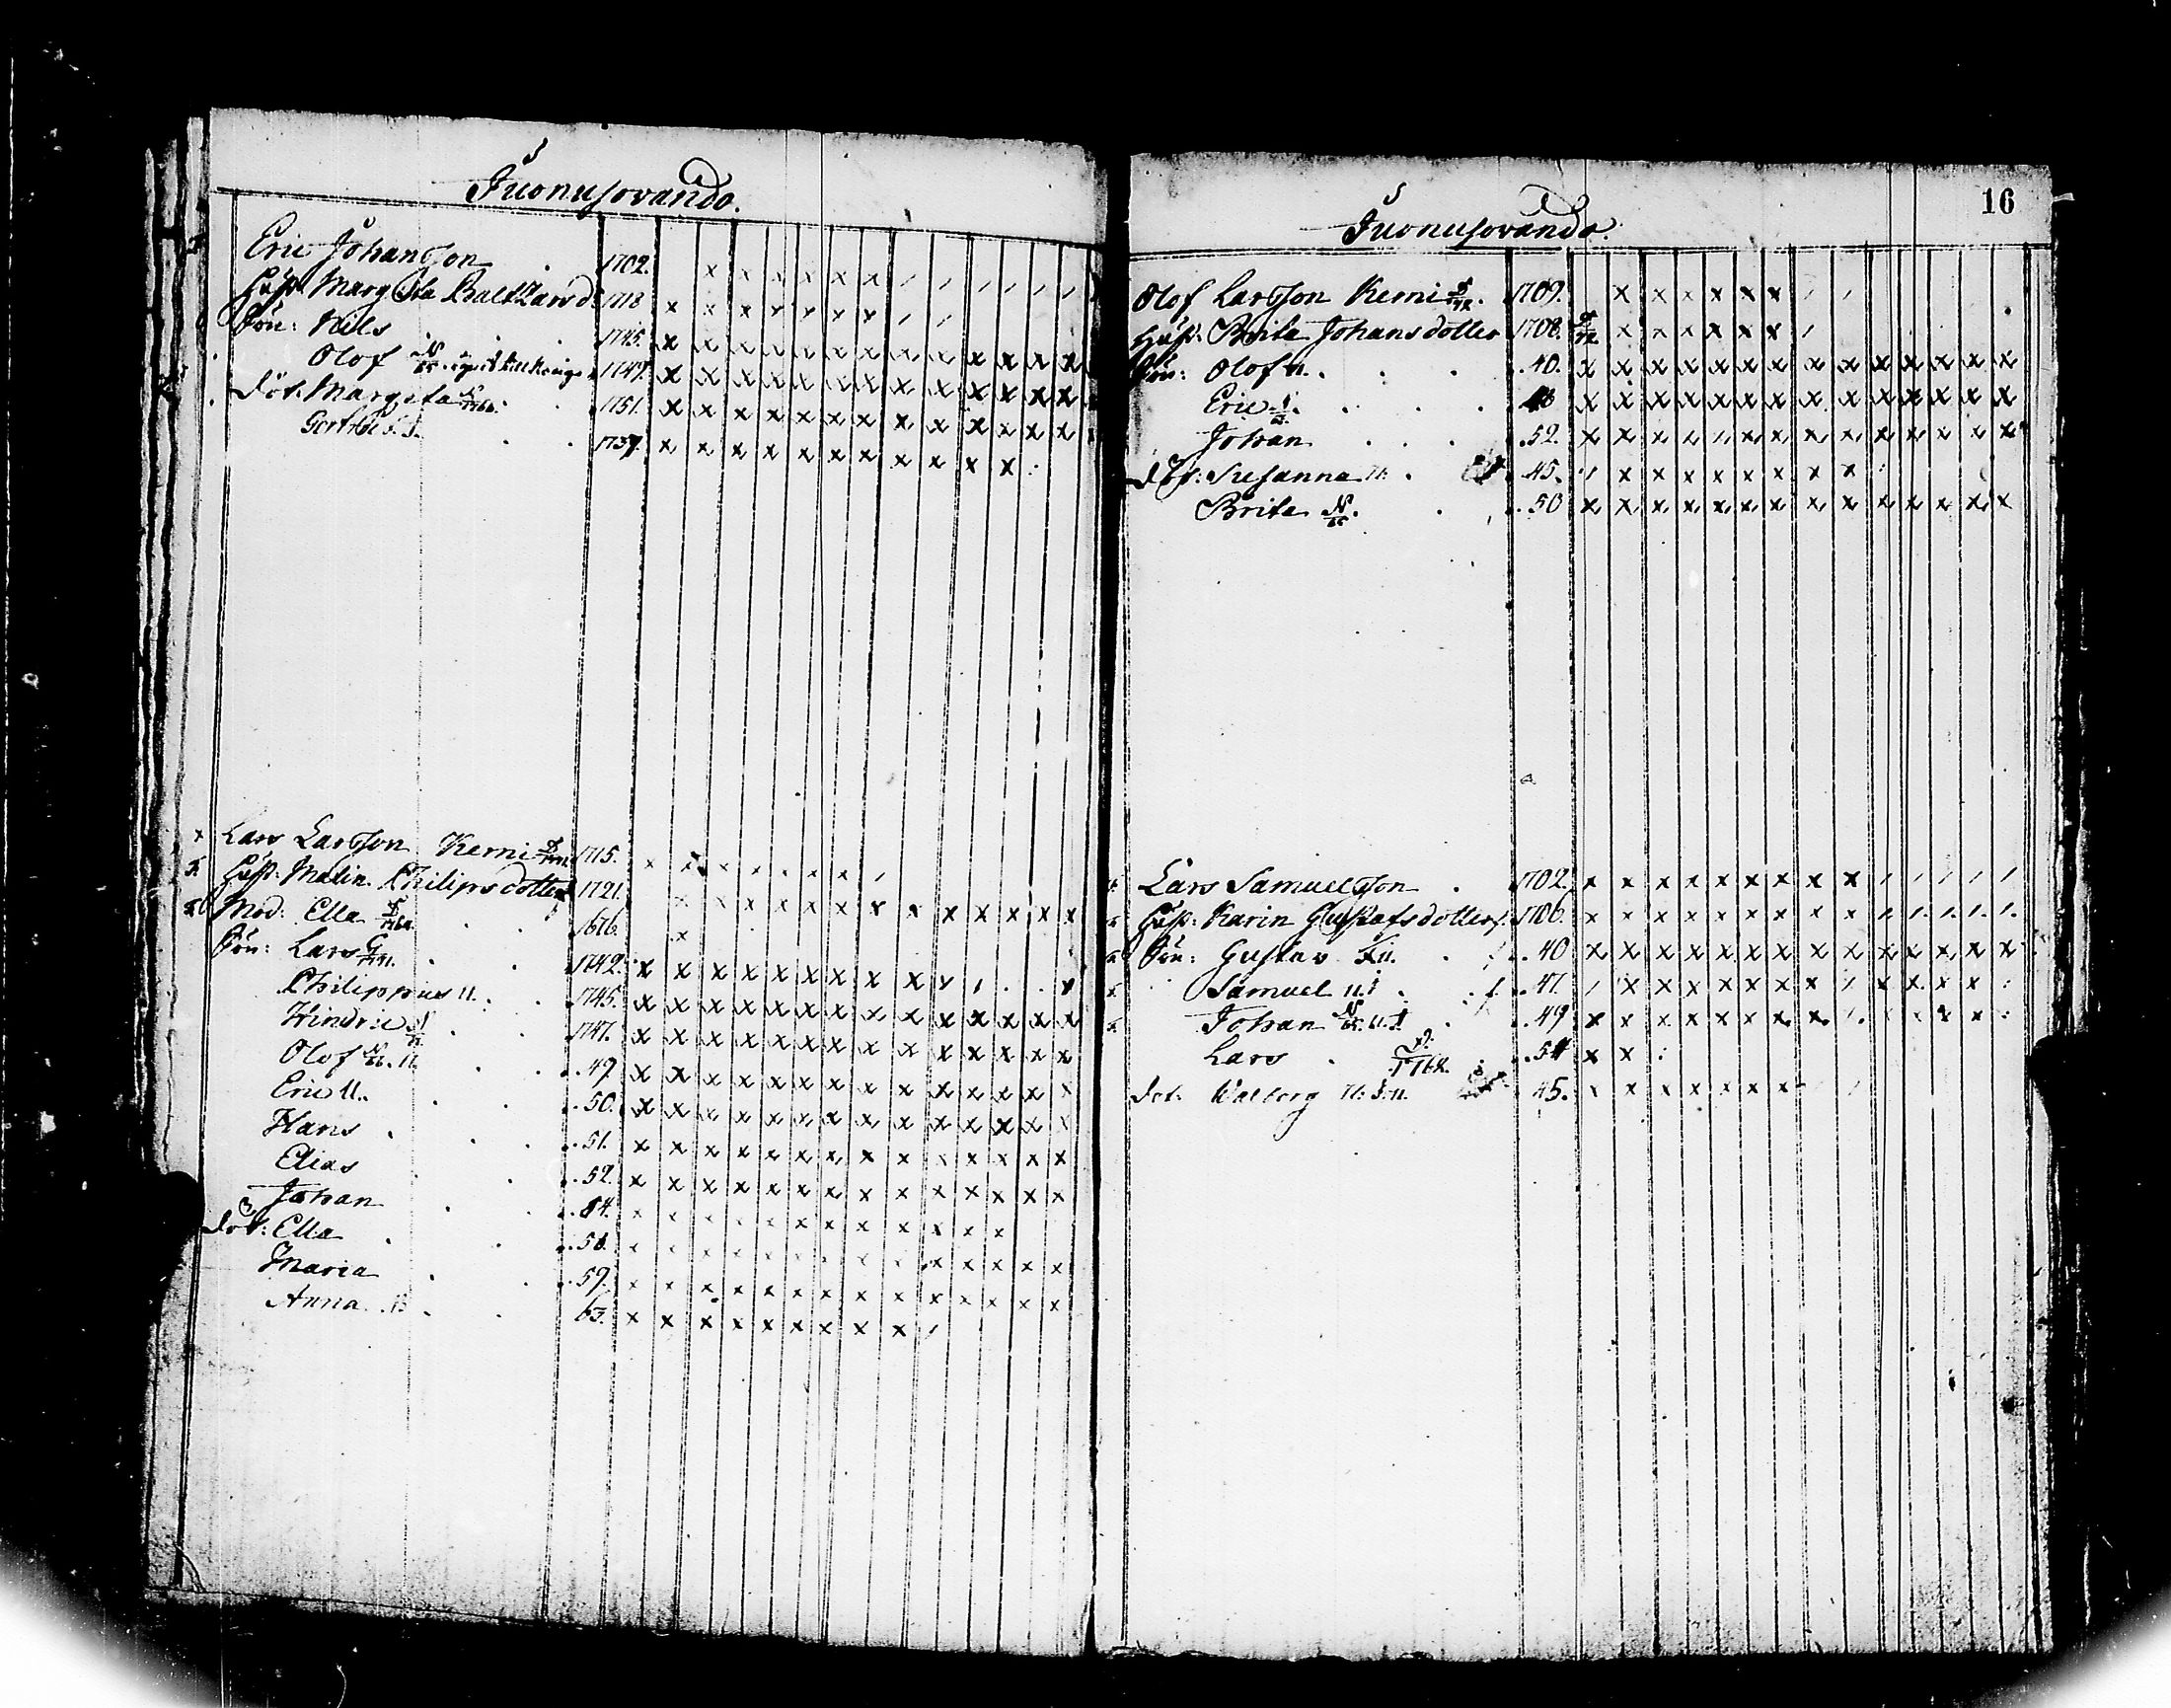 Juonusovando.
Eric Johansson 1702.
Hust. Margeta Baltzars d. 1718
Són: Nils 1745.
Olof N 1749.
dót. Margeta 1751.
Gertrud 1737.
Lars Larsson Kemi 1715.
Hust. Malin Philipsdotter 1721.
Mod: Ella 1676.
Són: Lars 1742.
Philippus 11. 1745.
Hindric 1747.
Olof 11. 49
Eric 11. 50.
Hans 51.
Elias 52.
Johan 54.
dót: Ella 58.
Maria 59.
Anna 63.
16
Juonusovando.
Olof Larsson Kemi 1709.
Hust. Brita Johansdotter 1708.
Són: Olof 11. 40.
Eric
Johan 52.
dót: Susanna 11. 45.
Brita N 50
Lars Samuelsson 1702.
Hust. Karin Gustafsdotter 1706.
Són: Gustav 40
Samuel 11. 47.
Johan N 49
Lars 1762. 54
dót. Walborg 45.